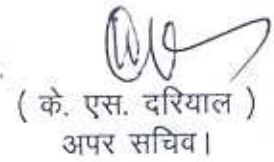 ( के. एस. दरियाल )
अपर सचिव।